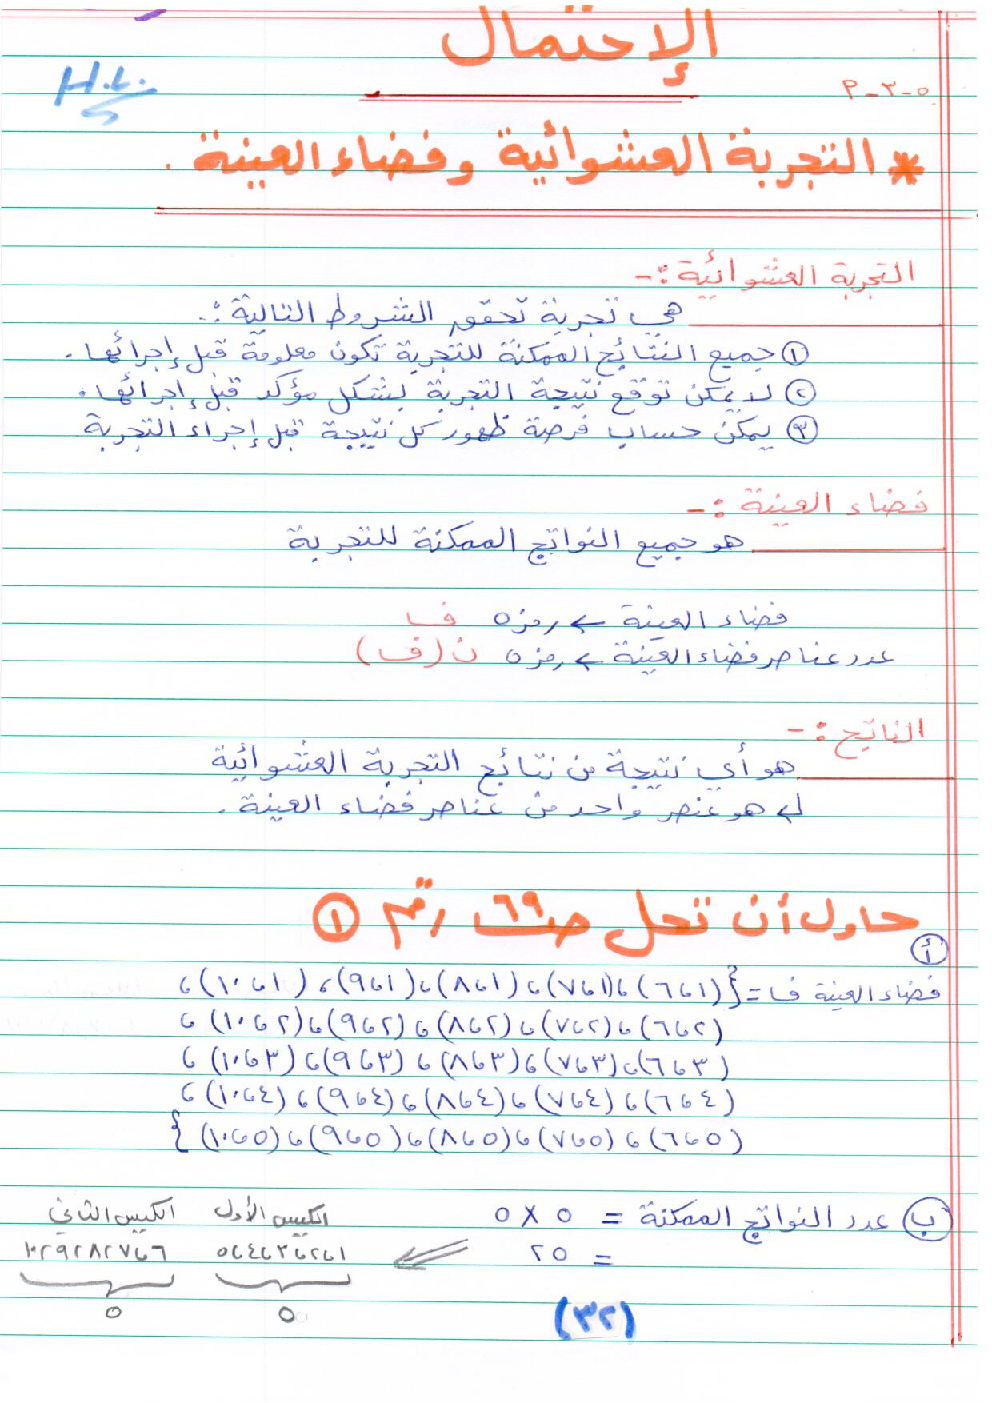 الإحتمال
H.L.
٥-٣-٩
* التجربة العشوائية وفضاء العينة .
التجربة العشوائية :-
هي تجربة تحقق الشروط التالية :.
① جميع النتائج الممكنة للتجربة تكون معلومة قبل إجرائها .
② لا يمكن توقع نتيجة التجربة بشكل مؤكد قبل إجرائها .
③ يمكن حساب فرصة ظهور كل نتيجة قبل إجراء التجربة
فضاء العينة :-
هو جميع النواتج الممكنة للتجربة
فضاء العينة ← رمزه ف
عدد عناصر فضاء العينة ← رمزه ن (ف)
الناتج :-
هو أي نتيجة من نتائج التجربة العشوائية
↳ هو عنصر واحد من عناصر فضاء العينة .
حاول أن تحل صـ ٦٩ رقم ①
أ
فضاء العينة ف = {(١،٦)،(١،٧)،(١،٨)،(١،٩)،(١،١٠)،
(٢،٦)،(٢،٧)،(٢،٨)،(٢،٩)،(٢،١٠)،
(٣،٦)،(٣،٧)،(٣،٨)،(٣،٩)،(٣،١٠)،
(٤،٦)،(٤،٧)،(٤،٨)،(٤،٩)،(٤،١٠)،
(٥،٦)،(٥،٧)،(٥،٨)،(٥،٩)،(٥،١٠)}
ب عدد النواتج الممكنة = ٥ × ٥
= ٢٥
الكيس الأول الكيس الثاني
١،٢،٣،٤،٥ ٦،٧،٨،٩،١٠
٥ ٥
(٣٢)